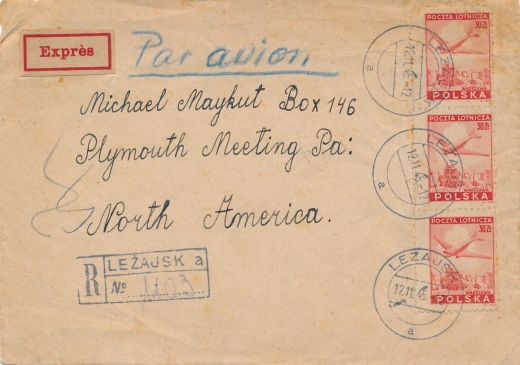 Exprès
Par avion
Michael Maykut Box 146
Plymouth Meeting Pa:
North America.
R
LEŻAJSK a
№ 1103
POCZTA LOTNICZA
30 ZŁ
WARSZAWA
POLSKA
LEŻAJSK
12.11.46-12
a
POCZTA LOTNICZA
30 ZŁ
WARSZAWA
POLSKA
LEŻAJSK
12.11.46
a
POCZTA LOTNICZA
30 ZŁ
WARSZAWA
POLSKA
LEŻAJSK
12.11.46
a